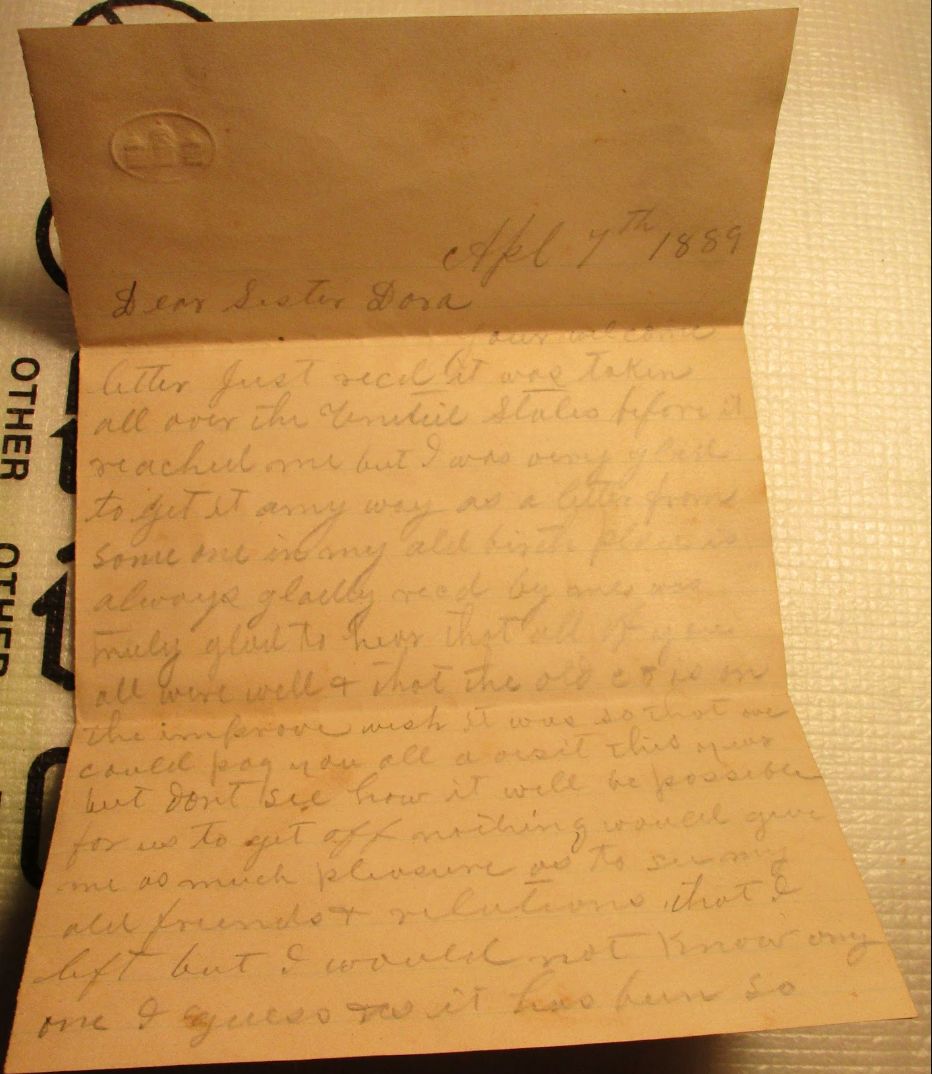 Apl 7th 1889
Dear Sister Dora
your welcome
letter Just recd it was taken
all over the United States before it
reached me but I was very glad
to get it any way as a letter from
some one in my old birth place is
always gladly recd by me was
truly glad to hear that all of you
all were well & that the old co is on
the improve wish it was so that we
could pay you all a visit this year
but dont see how it will be possible
for us to get off nothing would give
me as much pleasure as to see my
old friends & relations that I
left but I would not Know any
one I guess as it has been so
OTHER
OTHER